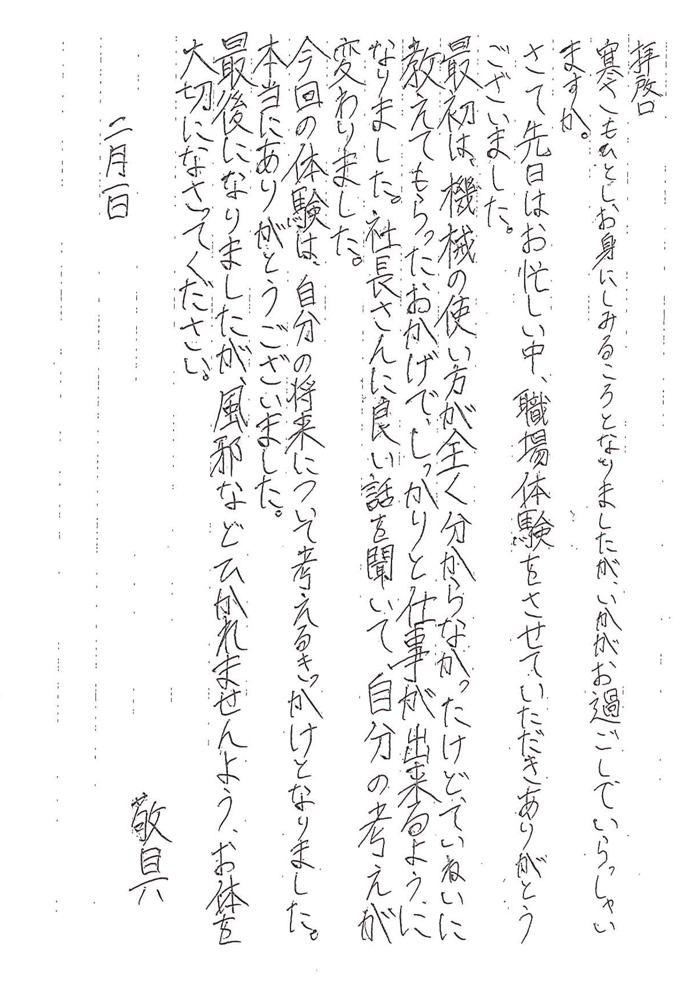 拝啓
寒さもひとしお身にしみるころとなりましたが、いかがお過ごしでいらっしゃい
ますか。
さて先日はお忙しい中、職場体験をさせていただきありがとう
ございました。
最初は、機械の使い方が全く分からなかったけど、ていねいに
教えてもらったおかげで、しっかりと仕事が出来るように
なりました。社長さんに良い話を聞いて、自分の考えが
変わりました。
今回の体験は、自分の将来について考えるきっかけとなりました。
本当にありがとうございました。
最後になりましたが、風邪などひかれませんよう、お体を
大切になさってください。
敬具
二月一日